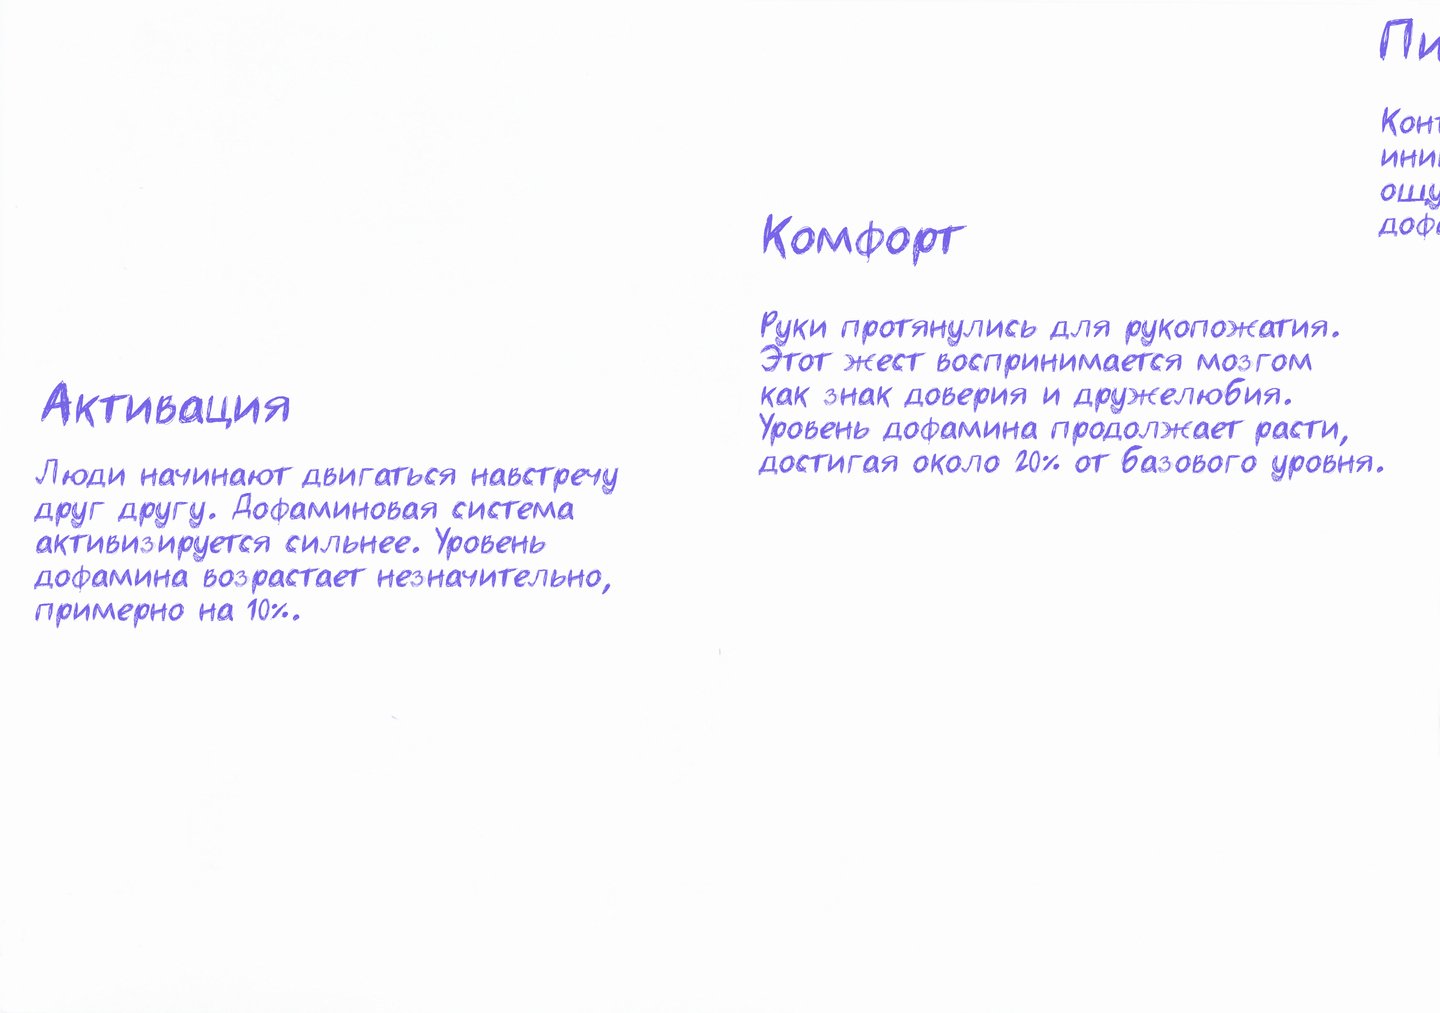 Активация
Люди начинают двигаться навстречу
друг другу. Дофаминовая система
активизируется сильнее. Уровень
дофамина возрастает незначительно,
примерно на 10%.
Комфорт
Руки протянулись для рукопожатия.
Этот жест воспринимается мозгом
как знак доверия и дружелюбия.
Уровень дофамина продолжает расти,
достигая около 20% от базового уровня.